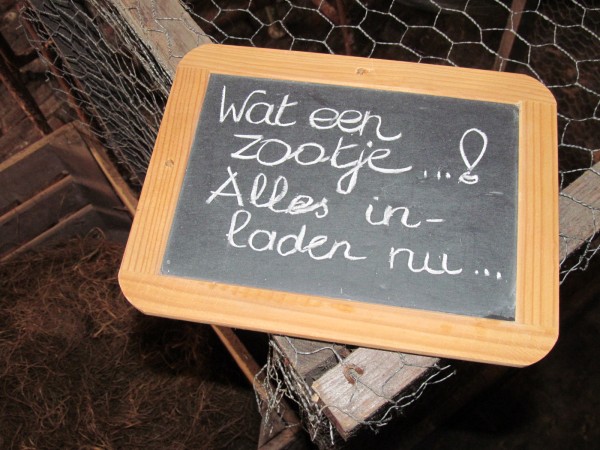 Wat een
zootje...!
Alles in-
laden nu...